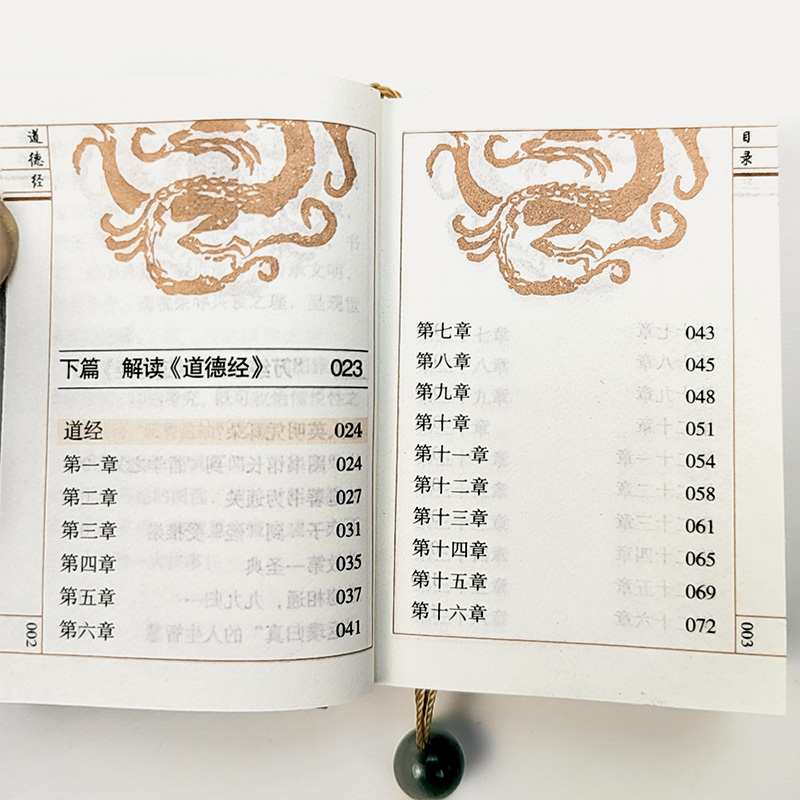 道德经
下篇 解读《道德经》 023
道经 024
第一章 024
第二章 027
第三章 031
第四章 035
第五章 037
第六章 041
002
目录
第七章 043
第八章 045
第九章 048
第十章 051
第十一章 054
第十二章 058
第十三章 061
第十四章 065
第十五章 069
第十六章 072
003